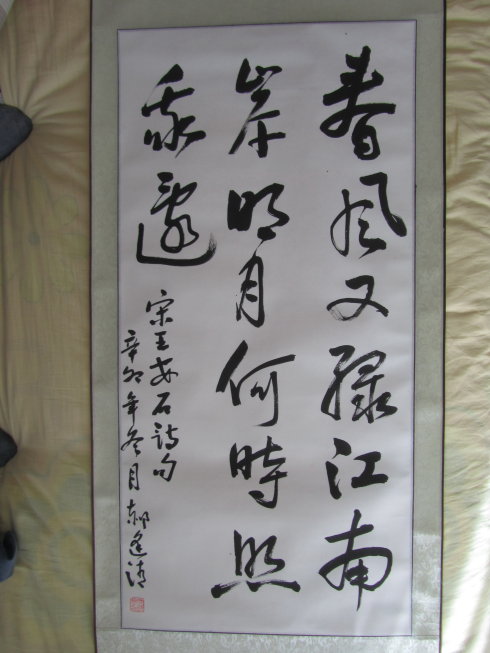 春风又绿江南
岸明月何時照
我還
宋王安石詩句
辛卯年冬月郝逢清